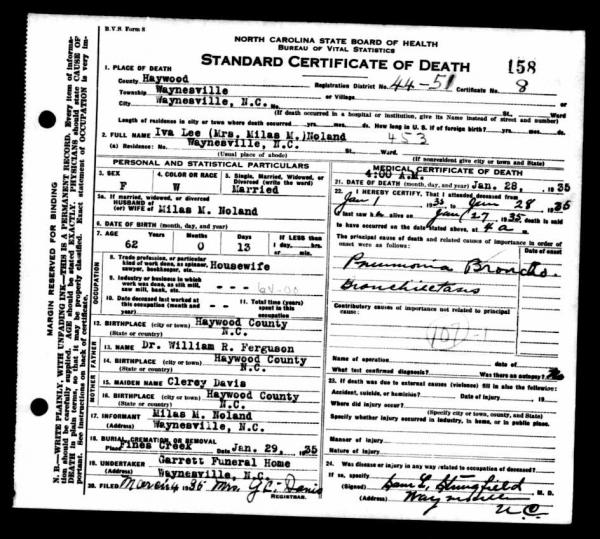 B.V.S. Form 8
NORTH CAROLINA STATE BOARD OF HEALTH
BUREAU OF VITAL STATISTICS
STANDARD CERTIFICATE OF DEATH 158
1. PLACE OF DEATH
County Haywood Registration District No. 44-51 Certificate No. 8
Township Waynesville or Village
City Waynesville, N.C. No. St. Ward
(If death occurred in a hospital or institution, give its Name instead of street and number)
Length of residence in city or town where death occurred yrs. mos. ds. How long in U.S. if of foreign birth? yrs. mos. ds.
2. FULL NAME Iva Lee (Mrs. Milas M.)Noland 453
(a) Residence: No. Waynesville, N.C. St. Ward
(Usual place of abode) (If nonresident give city or town and State)
PERSONAL AND STATISTICAL PARTICULARS
3. SEX 4. COLOR OR RACE 5. Single, Married, Widowed, or Divorced (write the word)
F W Married
5a. If married, widowed, or divorced
HUSBAND of
(or) WIFE of Milas M. Noland
6. DATE OF BIRTH (month, day, and year)
7. AGE Years Months Days IF LESS than
62 0 13 1 day, hrs.
or min.
OCCUPATION
8. Trade, profession, or particular kind of work done, as spinner, sawyer, bookkeeper, etc. Housewife
9. Industry or business in which work was done, as silk mill, saw mill, bank, etc. - - -
10. Date deceased last worked at this occupation (month and year) - - -
11. Total time (years) spent in this occupation
12. BIRTHPLACE (city or town) Haywood County
(State or country) N.C.
FATHER
13. NAME Dr. William R. Ferguson
14. BIRTHPLACE (city or town) Haywood County
(State or country) N.C.
MOTHER
15. MAIDEN NAME Clerey Davis
16. BIRTHPLACE (city or town) Haywood County
(State or country) N.C.
17. INFORMANT Milas M. Noland
(Address) Waynesville, N.C.
18. BURIAL, CREMATION, OR REMOVAL
Place Fines Creek Date Jan. 29, 1935
19. UNDERTAKER Garrett Funeral Home
(Address) Waynesville, N.C.
20. FILED March 4 1935 Mrs. G.C. Davis
REGISTRAR.
MEDICAL CERTIFICATE OF DEATH
4:00 A.M.
21. DATE OF DEATH (month, day, and year) Jan. 28, 1935
22. I HEREBY CERTIFY, That I attended deceased from
Jan 1 1935 to Jan 28 1935
I last saw h alive on Jan 27 1935 death is said
to have occurred on the date stated above, at 4 a.m.
The principal cause of death and related causes of importance in order of onset were as follows: Date of onset
Pneumonia Broncho
Bronchiectasis
Contributory causes of importance not related to principal cause:
Name of operation date of
What test confirmed diagnosis? Was there an autopsy? No
23. If death was due to external causes (violence) fill in also the following:
Accident, suicide, or homicide? Date of injury 19
Where did injury occur?
(Specify city or town, county, and State)
Specify whether injury occurred in industry, in home, or in public place.
Manner of injury
Nature of injury
24. Was disease or injury in any way related to occupation of deceased?
If so, specify
(Signed) Sam L. Stringfield M. D.
(Address) Waynesville N.C.
MARGIN RESERVED FOR BINDING
N. B.—WRITE PLAINLY, WITH UNFADING INK—THIS IS A PERMANENT RECORD. Every item of information should be carefully supplied. AGE should be stated EXACTLY. PHYSICIANS should state CAUSE OF DEATH in plain terms, so that it may be properly classified. Exact statement of OCCUPATION is very important. See instructions on back of certificate.